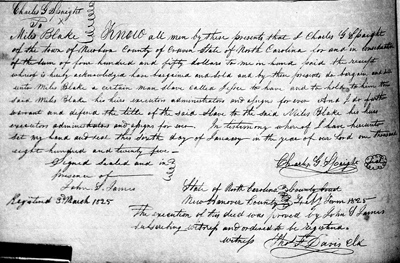 Charles G Speight
To
Miles Blake Know all men by these presents that I Charles G Speight
of the Town of Newbern County of Craven State of North Carolina for and in consideration
of the sum of four hundred and fifty dollars to me in hand paid the receipt
whereof is hereby acknowledged have bargained and sold and by these presents do bargain and sell
unto Miles Blake a certain man slave called to have and to hold to him the
said Miles Blake his heirs executors administrators and assigns for ever And I do further
warrant and defend the title of the said slave to the said Miles Blake his heirs
executors administrators and assigns for ever. In testimony whereof I have hereunto
set my hand and seal This fourth day of January in the year of our Lord one thousand
eight hundred and twenty five
Signed Sealed and in
presence of
Charles G Speight
John S. James
Registered 3 March 1825
State of North Carolina County Court
New Hanover County Term 1825
The execution of this deed was proved by John S James
subscribing witness and ordered to be registered.
Witness Tho F Davis Clk